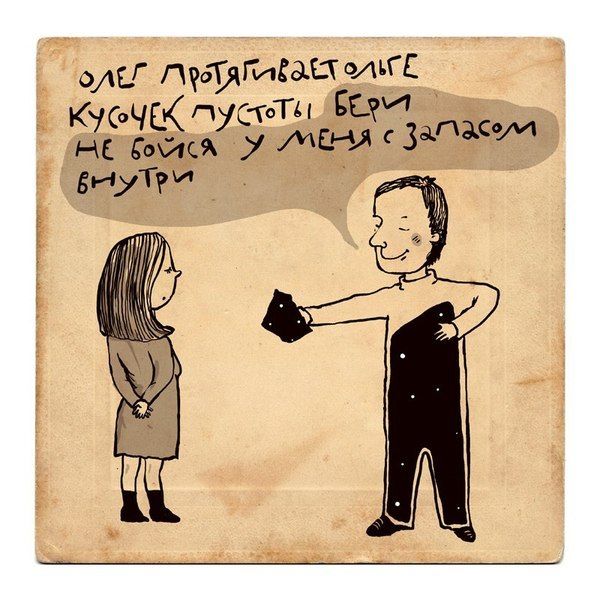 Олег протягивает Ольге
кусочек пустоты бери
не бойся у меня с запасом
внутри